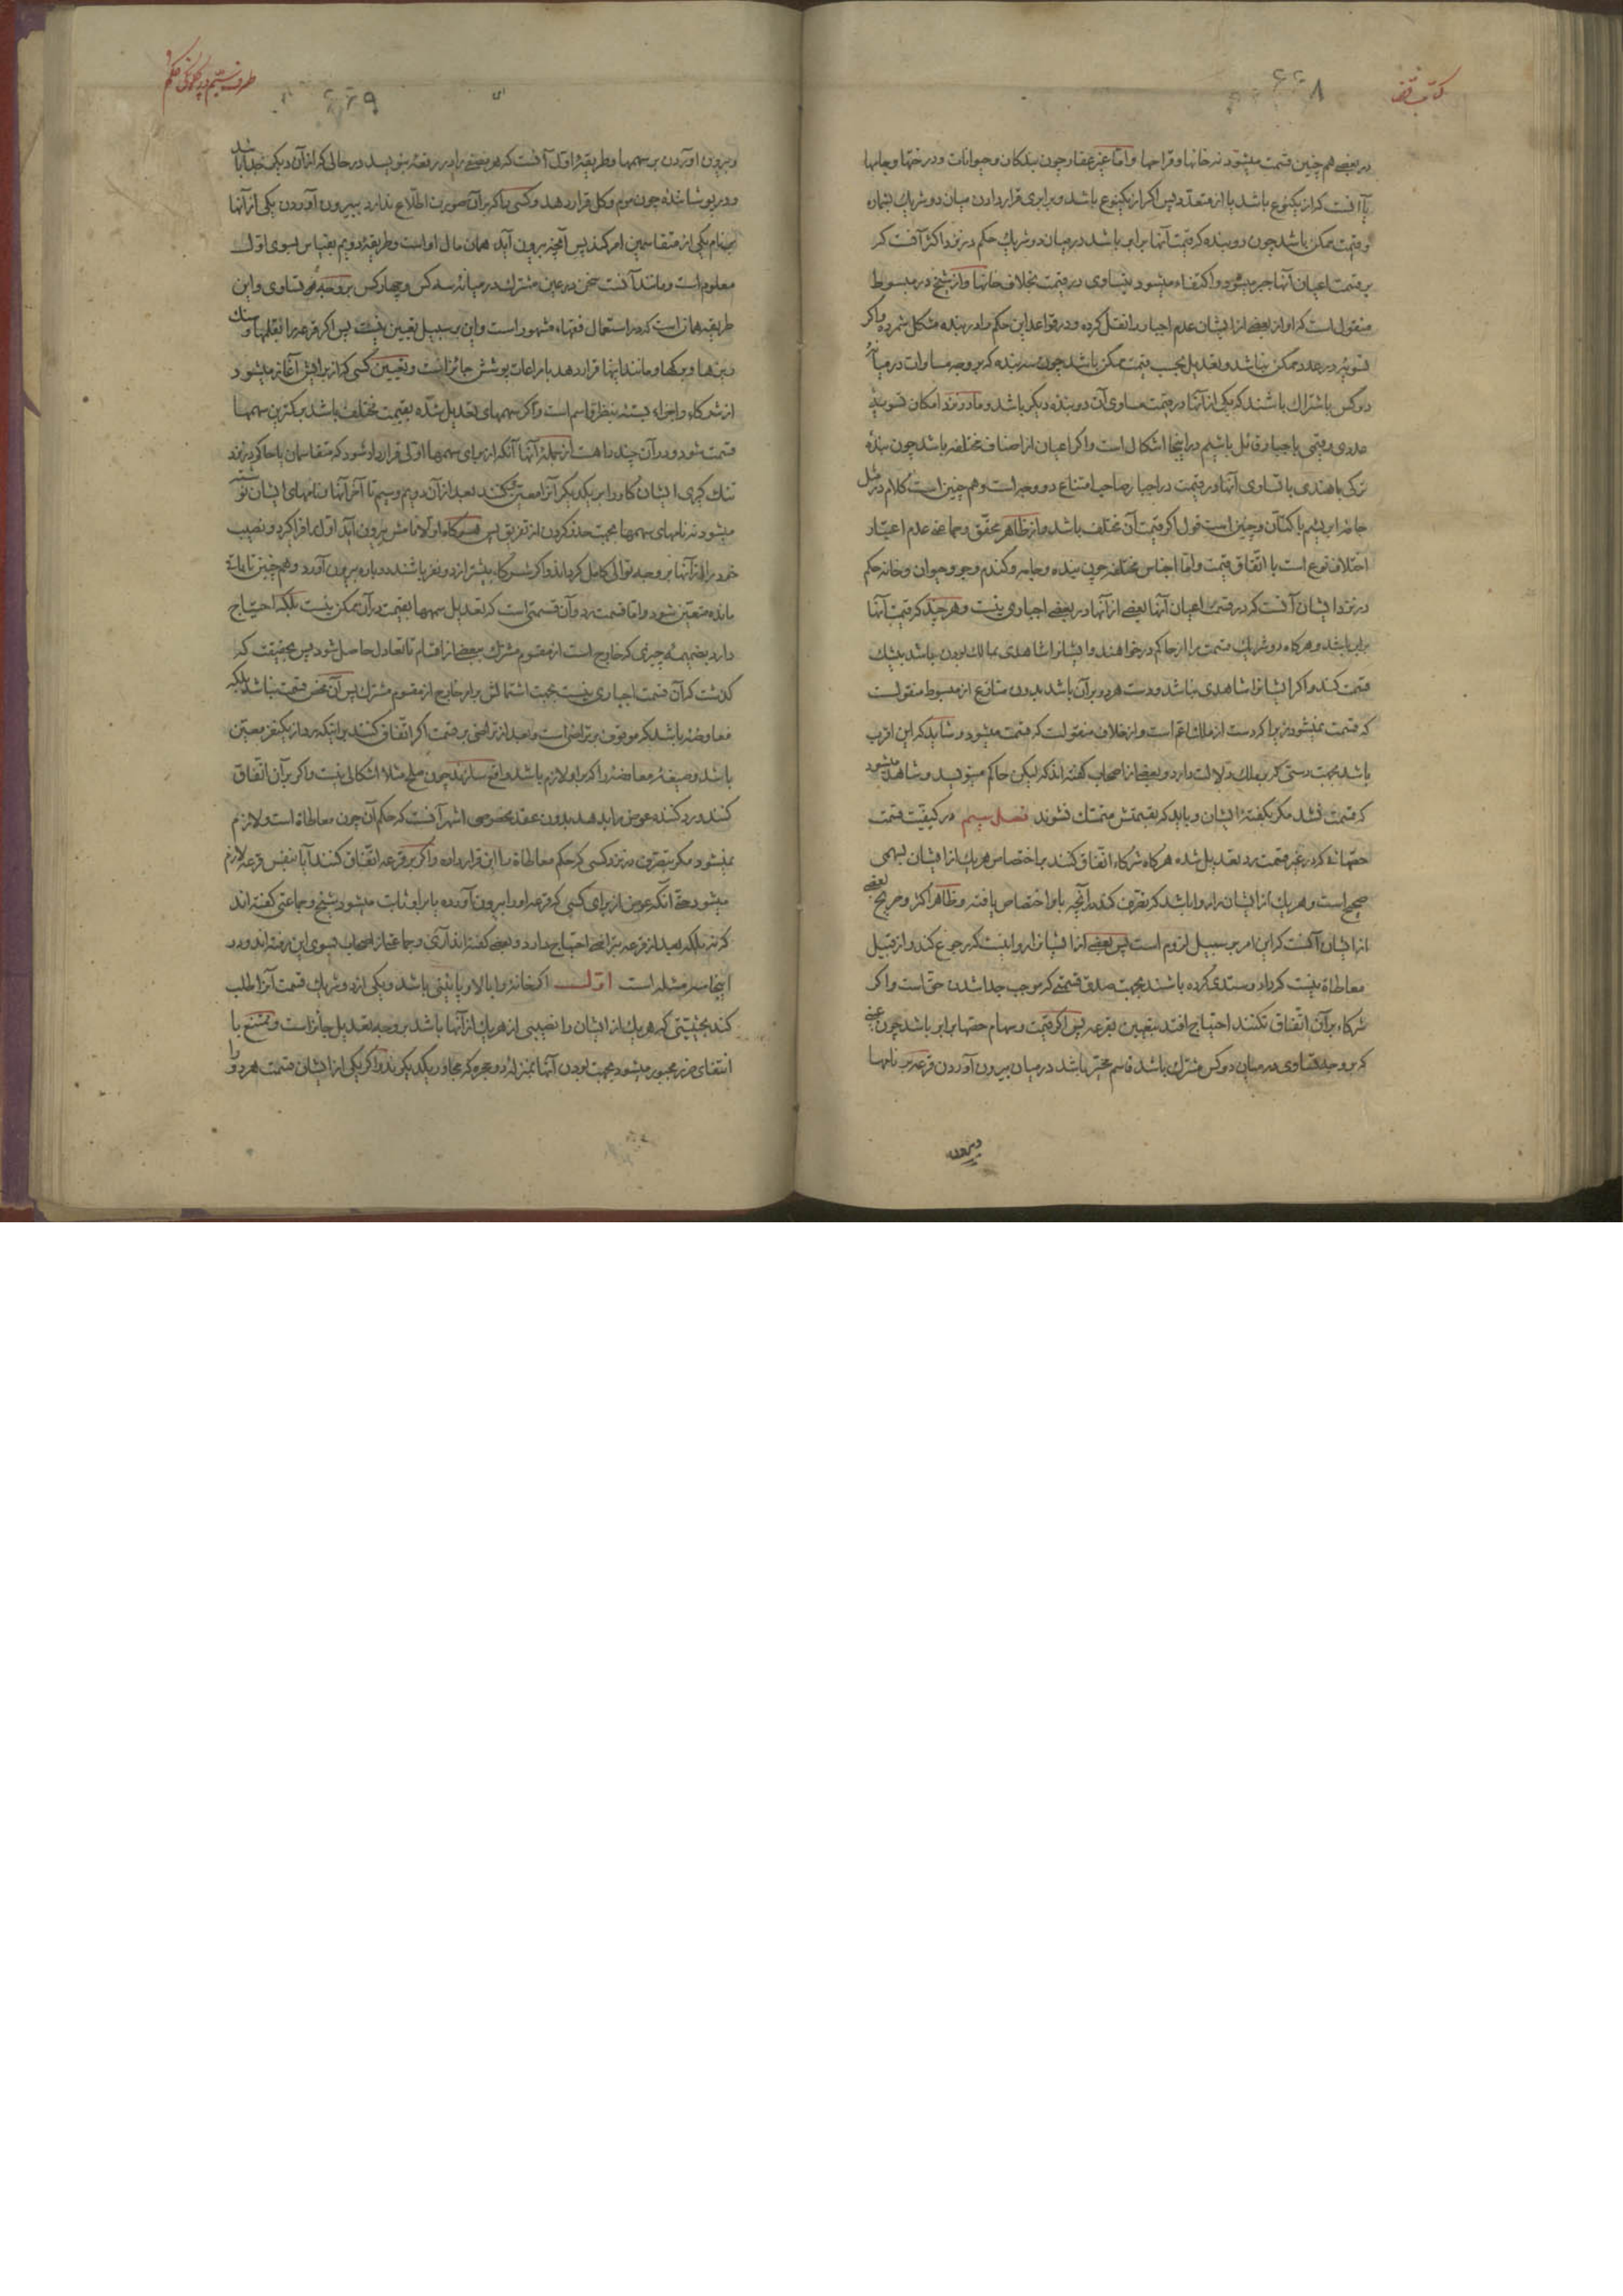 کتاب قضا
۶۶۸
در بعضی هم چنین قسمت میشود نه خانها و قراحها و امّا غیر عقار چون بندکان و حیوانات و درختها و جامها
یا آنست که از یکنوع باشد یا از متعدّد پس اکر از یکنوع باشد و برابری قرار دادن میان دو شریک بشماره
و قیمت ممکن باشد چون دو بنده که قیمت آنها برابر باشد در میان دو شریک حکم در نزد اکثر آنست که
بر قسمت اعیان آنها جبر میشود و اکتفاء میشود بتساوی در قیمت بخلاف خانها و از شیخ در مبسوط
منقول است که او از بعضی از ایشان عدم اجبار را نقل کرده و در قواعد این حکم را در بنده مشکل شمرده و اکر
تسویه در عدد ممکن نباشد و تعدیل بحسب قیمت ممکن باشد چون سه بنده که بر وجه مساوات در میانه
دو کس باشتراک باشند که یکی از آنها در قیمت مساوی آن دو بنده دیکر باشد و ما در نزد امکان تسویهٔ
عددی و قیمی باجبار قائل باشیم در اینجا اشکال است و اکر اعیان از اصناف مختلفه باشد چون بندهٔ
ترکی یا هندی با تساوی آنها در قیمت در اجبار صاحب امتناع دو وجه است و هم چنین است کلام در مثل
جامهٔ ابریشم یا کتّان و چنین است قول اکر قیمت آن مختلف باشد و از ظاهر محقّق و جماعتی عدم اعتبار
اختلاف نوع است با اتّفاق قیمت و امّا اجناس مختلفه چون بنده و جامه و کندم و جو و حیوان و خانه حکم
در نزد ایشان آنست که در قسمت اعیان آنها بعضی از آنها در بعضی اجباری نیست و هر چند که قیمت آنها
برابر باشد و هر کاه دو شریک قسمت را از حاکم در خواهند و ایشانرا شاهدی بمالک بودن باشد بیشک
قسمت کند و اکر ایشانرا شاهدی نباشد و دست هر دو بر آن باشد بدون منازع از مبسوط منقولست
که قسمت نمیشود زیرا که دست از ملک اعم است و از خلاف منقولست که قسمت میشود و شاید که این اقرب
باشد بجهت دستی که بر ملک دلالت دارد و بعضی از اصحاب کفته اند که لیکن حاکم مینویسد و شاهد میشود
که قسمت نشد مکر بکفتهٔ ایشان و باید که بقسمتش متمسّک نشوند فصل سیم در کیفیّت قسمت
حقّهائی که در غیر قسمت رد تعدیل شده هر کاه شرکاء اتّفاق کنند باختصاص هر یک از ایشان بسهمی
صحیح است و هر یک از ایشان را روا باشد که تصرّف کند در آنچه باو اختصاص یافته و ظاهر اکثر و صریح بعضی
از ایشان آنست که این امر بر سبیل لزوم است پس بعضی از ایشانرا روا نیست که رجوع کند و از قبیل
معاطاة نیست که داد و ستدی کرده باشند بجهت صدق قسمتی که موجب جدا شدن حقّ است و اکر
شرکاء بر آن اتّفاق نکنند احتیاج افتد بتعیین بقرعه پس اکر قیمت و سهام حصّها برابر باشد چون عینی
که بر وجه تساوی در میان دو کس مشترک باشد قاسم مخیّر باشد در میان بیرون آوردن قرعه بر نامها
وبیرون
۶۶۹
و بیرون اوردن بر سهمها و طریقهٔ اوّل آنست که هر بعضی را در رقعهٔ بنویسد در حالی که از آن دیکر جدا باشد
و در پوشانندهٔ چون موم و کل قرار دهد و کسی را که بر آن صورت اطّلاع ندارد ببیرون آوردن یکی از آنها
بنام یکی از متقاسمین امر کند پس آنچه بیرون آید همان مال او است و طریقهٔ دویم بقیاس بسوی اوّل
معلوم است و مانند آنست سخن در عین مشترک در میانهٔ سه کس و چهار کس بر وجه تساوی و این
طریقه همانست که در استعمال فقهاء مشهور است و این بر سبیل تعیین نیست پس اکر قرعه را بقلمها و سنک
ریزها و برکها و مانند اینها قرار دهد با مراعات پوشش جائز است و تعیین کسی که از برایش آغاز میشود
از شرکاء و اجزاء بسته بنظر قاسم است و اکر سهمهای تعدیل شده بقیمت مختلف باشد بر کمترین سهمها
قسمت شود و در آن چند راهست از جملهٔ آنها آنکه از برای سهمها اوّلی قرار داد شود که متقاسمان یا حاکم در نزد
میشود نه نامهای سهمها بجهت حذر کردن از تفریق پس هر کاه اوّلا نامش بیرون آید اوّل را فرا کیرد و نصیب
خود را از آنها بر وجه توالی کامل کرداند و اکر شرکاء بیشتر از دو نفر باشند دوباره بیرون آورد و هم چنین تا باقی
مانده متعیّن شود و امّا قسمت رد و آن قسمتی است که تعدیل سهمها بقیمت در آن ممکن نیست بلکه احتیاج
دارد بضمیمهٔ چیزی که خارج است از مقسوم مشترک ببعضی از اقسام تا تعادل حاصل شود پس بحقیقت که
کذشت که آن قسمت اجباری نیست بجهت اشتمالش بر امر خارج از مقسوم مشترک پس آن محض قسمت نباشد بلکه
معاوضهٔ باشد که موقوف بر تراضی است و بعد از تراضی بر قسمت اکر اتّفاق کنند بر اینکه رد از یکنفر معیّن
باشد و صیغهٔ معاوضهٔ را که بر او لازم باشد واقع سازند چون صلح مثلا اشکالی نیست و اکر بر آن اتّفاق
کنند و رد کننده عوض را بدهد بدون عقد مخصوصی اشهر آنست که حکم آن چون معاطاة است و لازم
نمیشود مکر بتصرّف در نزد کسی که حکم معاطاة را این قرار داده و اکر بر قرعه اتّفاق کنند آیا بنفس قرعه لازم
میشود حتّی آنکه عوض از برای کسی که قرعه او را بیرون آورده یا بر او ثابت میشود شیخ و جماعتی کفته اند
که نه بلکه بعد از قرعه بتراضی احتیاج دارد و بعضی کفته اند آری و جماعتی از اصحاب بسوی این رفته اند و در
اینجا سه مسئله است اوّل اکر خانهٔ را بالا و پائینی باشد و یکی از دو شریک قسمت آنرا طلب
کند بحیثیّتی که هر یک از ایشان را نصیبی از هر یک از آنها باشد بر وجه تعدیل جائز است و ممتنع با
انتفای ضرر مجبور میشود بجهت بودن آنها بمنزلهٔ دو حجره که مجاور یکدیکرند و اکر یکی از ایشان قسمت هر دو را